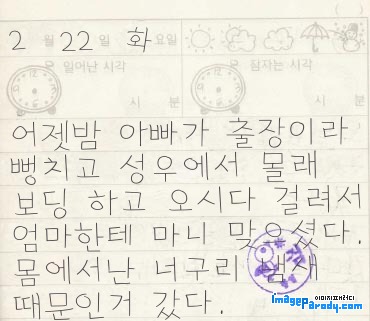 2 월 22 일 화 요일
일어난 시각 잠자는 시각
시 분 시 분
어젯밤 아빠가 출장이라
뻥치고 성우에서 몰래
보딩 하고 오시다 걸려서
엄마한테 마니 맞으셨다.
몸에서난 너구리 냄새
때문인거 같다.
이미지패러디
ImageParody.com